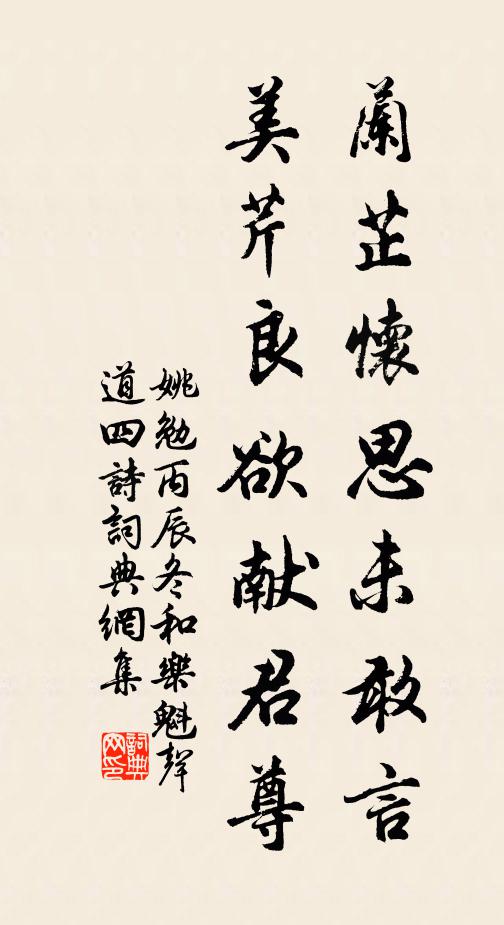 蘭芷懷思未敢言
美芹良欲献君尊
姚勉丙辰冬和樂魁聲
道四詩詞典網集
詞典
网印